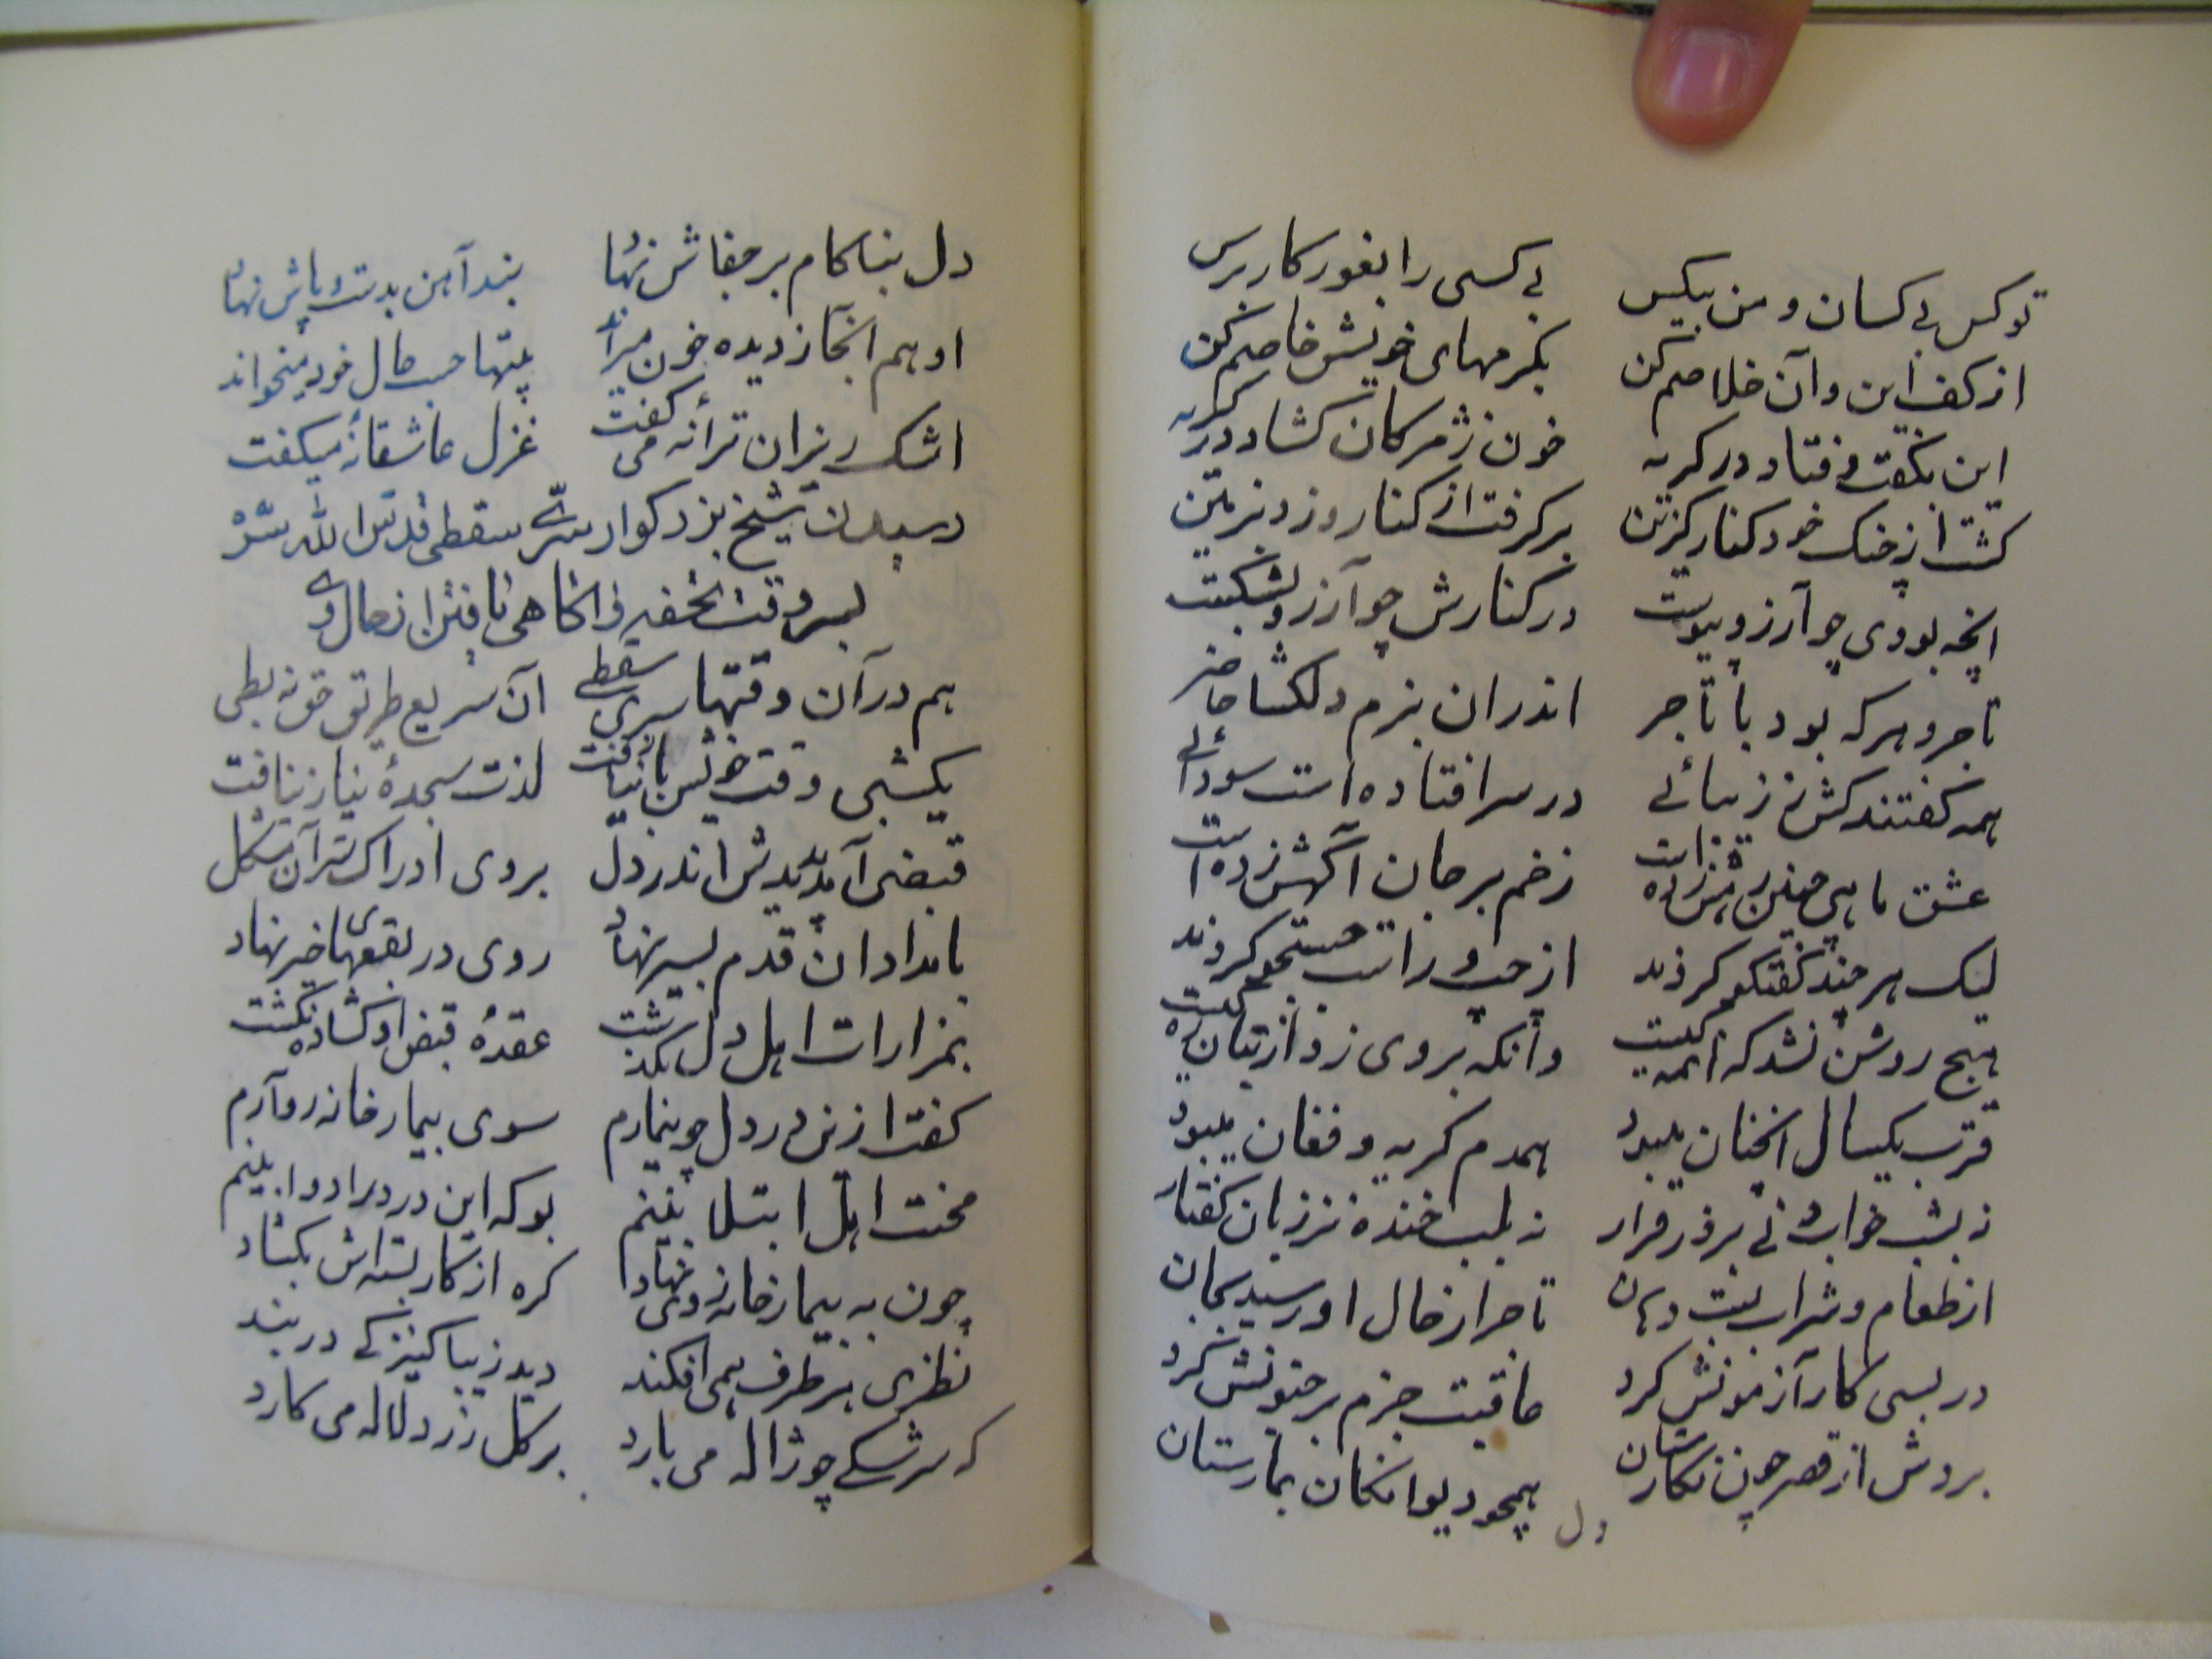 تو کس بی کسان و من بیکس بی کسی را بغور کار برس
از کف این و آن خلاصم کن بکرمهای خویش خاصم کن
این بگفت و فتاد در کریه خون ز مژکان کشاد در کریه
کشت از چنک خود کنار کزین بر کرفت از کنار رود
انچه بودی چو آرزو پیوست در کنارش چو آرزو بشکست
تاجر و هر که بود با تاجر اندران بزم دلکشا حاضر
همه کفتند کش ز زیبائی در سر افتاده است سودائی
عشق ماهی چنین رهش زده است زخم بر جان آکهش زده است
لیک هر چند کفتکو کردند از چپ و راست جستجو کردند
هیچ روشن نشد که آنمه کیست وانکه بروی زد از بتان ره کیست
قرب یکسال انچنان میبود همدم کریه و فغان میبود
نه بشب خواب و نی بروز قرار نه بلب خنده نز زبان کفتار
از طعام و شراب بست دهان تاجر از حال او رسید بجان
در بسی کار آزمونش کرد عاقبت جزم بر جنونش کرد
بردش از قصر چون نکارستان همچو دیوانکان بمارستان
دل
دل بناکام بر جفاش نهاد بند آهن بدست و پاش نهاد
او هم آنجا ز دیده خون میراند بیتها حسب حال خود میخواند
اشک ریزان ترانه می کفت غزل عاشقانه میکفت
رسیدن شیخ بزرکوار سری سقطی قدس الله سره
بسر وقت تحفه و اکاهی یافتن از حال وی
هم در آن وقتها سری سقطی آن سریع طریق حق نه بطی
یکشبی وقت خویش باز نیافت لذت سجدهٔ نیاز نیافت
قبضی آمد پدیدش اندر دل بروی ادراک سر آن مشکل
بامدادان قدم بسیر نهاد روی در بقعهای خیر نهاد
بمزارات اهل دل بکذشت عقدهٔ قبض او کشاده نکشت
کفت ازین درد دل چو بیمارم سوی بیمارخانه رو آرم
محنت اهل ابتلا بینم بو که این درد را دوا بینم
چون به بیمارخانه روی نهاد کره از کار بسته اش بکشاد
نظری هر طرف همی افکند دید زیبا کنیزکی در بند
که سرشکی چو ژاله می بارد بر کل زرد لاله می کارد